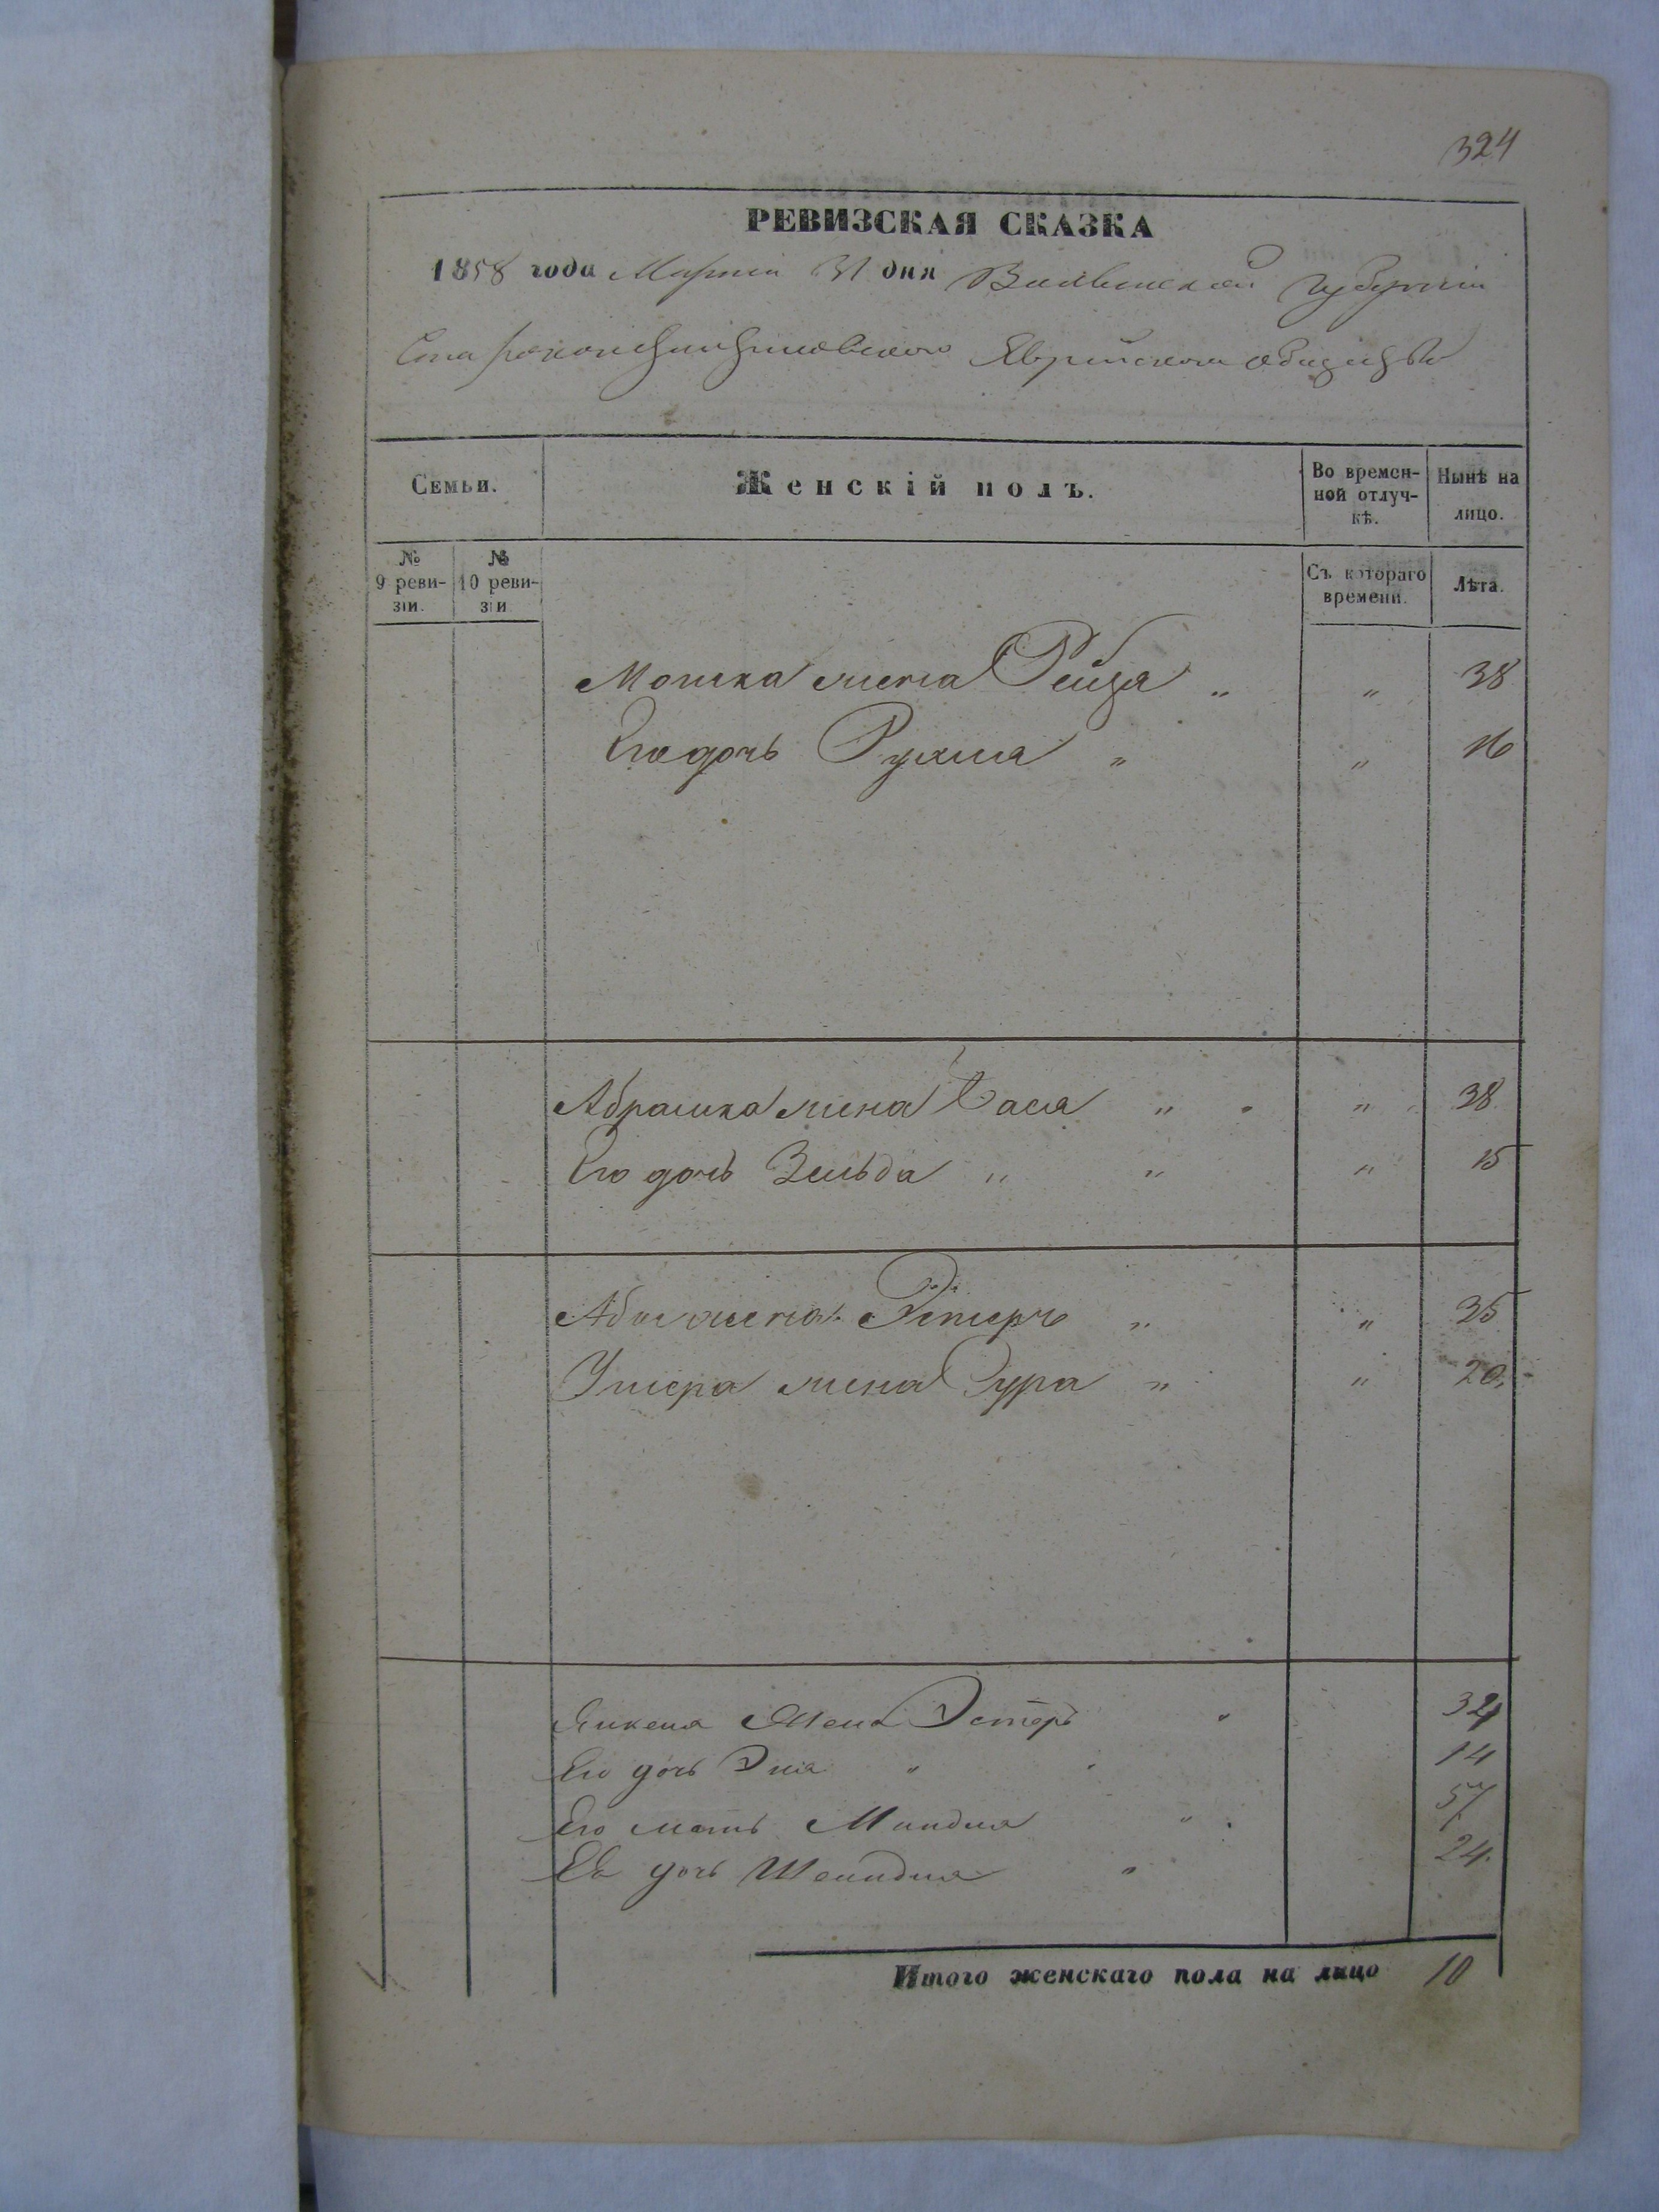 324
РЕВИЗСКАЯ СКАЗКА
1858 года Марта 31 дня Виленской губернии
Староконстантиновского Еврейского общества
Семьи. Женскій полъ. Во времен-ной отлуч-кѣ. Нынѣ на лицо.
№ 9 реви-зіи. № 10 реви-зіи Съ котораго времени. Лѣта.
Мошка жена Рейза „ „ 38
Его дочь Рухля „ „ 16
Абрашка жена Хася „ „ 38
Его дочь Зельда „ „ „ 15
Абы жена Эстеръ „ „ 35
Ушера жена Сура „ „ 20
Янкеля жена Эстеръ „ 32
Его дочь Эля „ „ 14
Его мать Миндля „ 57
Ея дочь Шейндля „ 24.
Итого женскаго пола на лицо 10